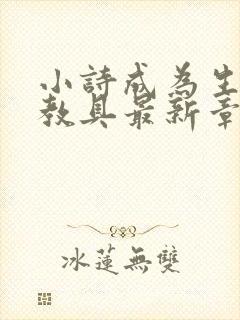 小詩成為生
教具最新章
冰蓮無雙